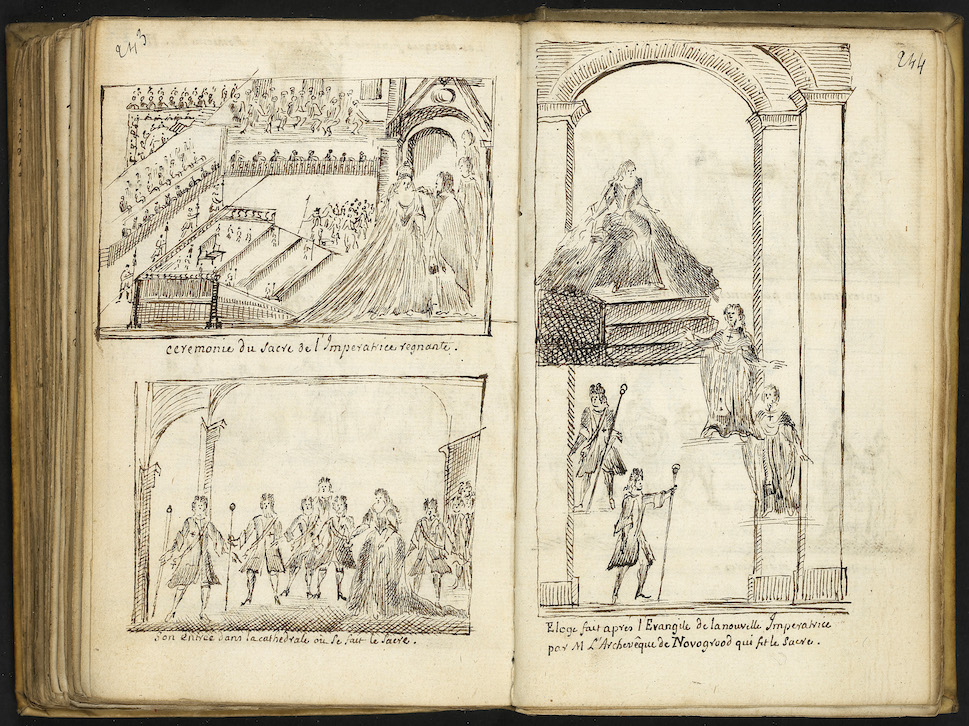 243
ceremonie du sacre de l'Imperatrice regnante.
Son entrée dans la cathedrale ou se fait le sacre.
244
Eloge fait apres l'Evangile de la nouvelle Imperatrice
par M L'Archevêque de Novogrood qui fit le sacre.